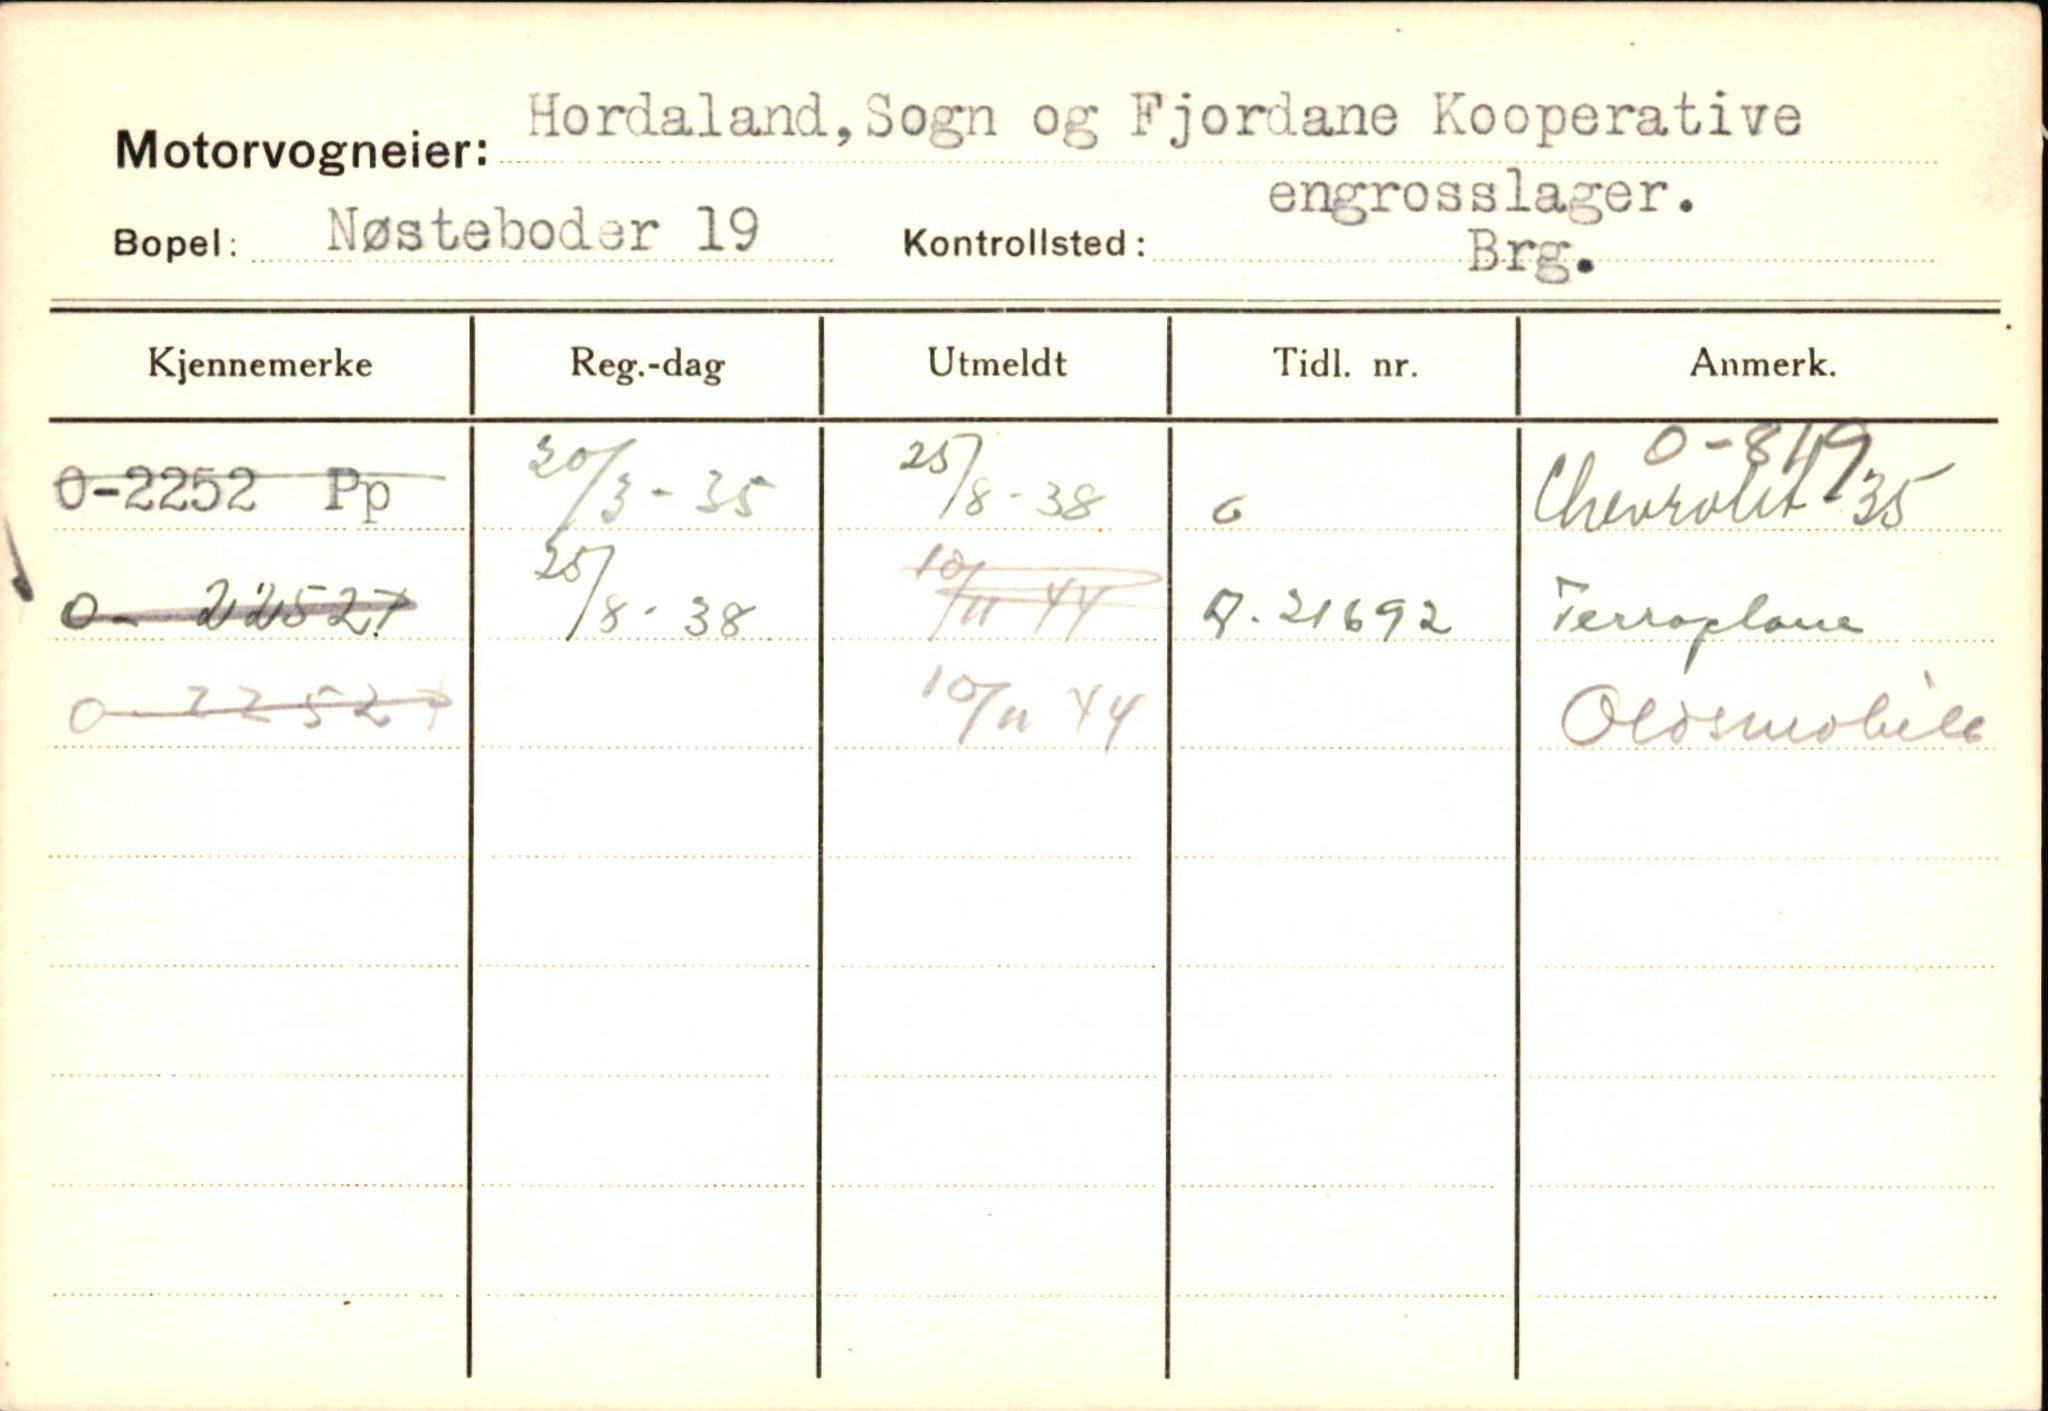 Motorvogneier: Hordaland, Sogn og Fjordane Kooperative
engrosslager.
Bopel: Nøsteboder 19 Kontrollsted: Brg.
Kjennemerke Reg.-dag Utmeldt Tidl. nr. Anmerk.
O-819
O-2252 Pp 20/3-35 25/8-38 o Chevrolet-35
O- 22527 25/8-38 10/11 44 21692 Terraplane
O-22527 10/11 44 Oldsmobile